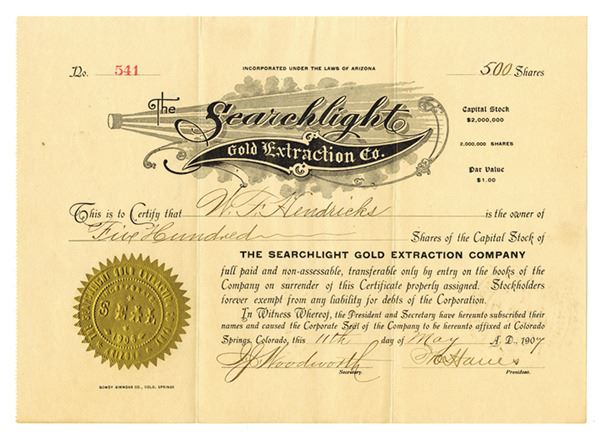 No. 541
INCORPORATED UNDER THE LAWS OF ARIZONA
500 Shares
The Searchlight
Gold Extraction Co.
Capital Stock
$2,000,000
2,000,000 SHARES
Par Value
$1.00
This is to Certify that W. F. Hendricks is the owner of
Five Hundred Shares of the Capital Stock of
THE SEARCHLIGHT GOLD EXTRACTION COMPANY
full paid and non-assessable, transferable only by entry on the books of the
Company on surrender of this Certificate properly assigned. Stockholders
forever exempt from any liability for debts of the Corporation.
In Witness Whereof, the President and Secretary have hereunto subscribed their
names and caused the Corporate Seal of the Company to be hereunto affixed at Colorado
Springs, Colorado, this 11th day of May A.D. 1907
Woodworth
Secretary.
President.
THE SEARCHLIGHT GOLD EXTRACTION COMPANY
SEAL
GOWDY SIMMONS CO., COLO. SPRINGS